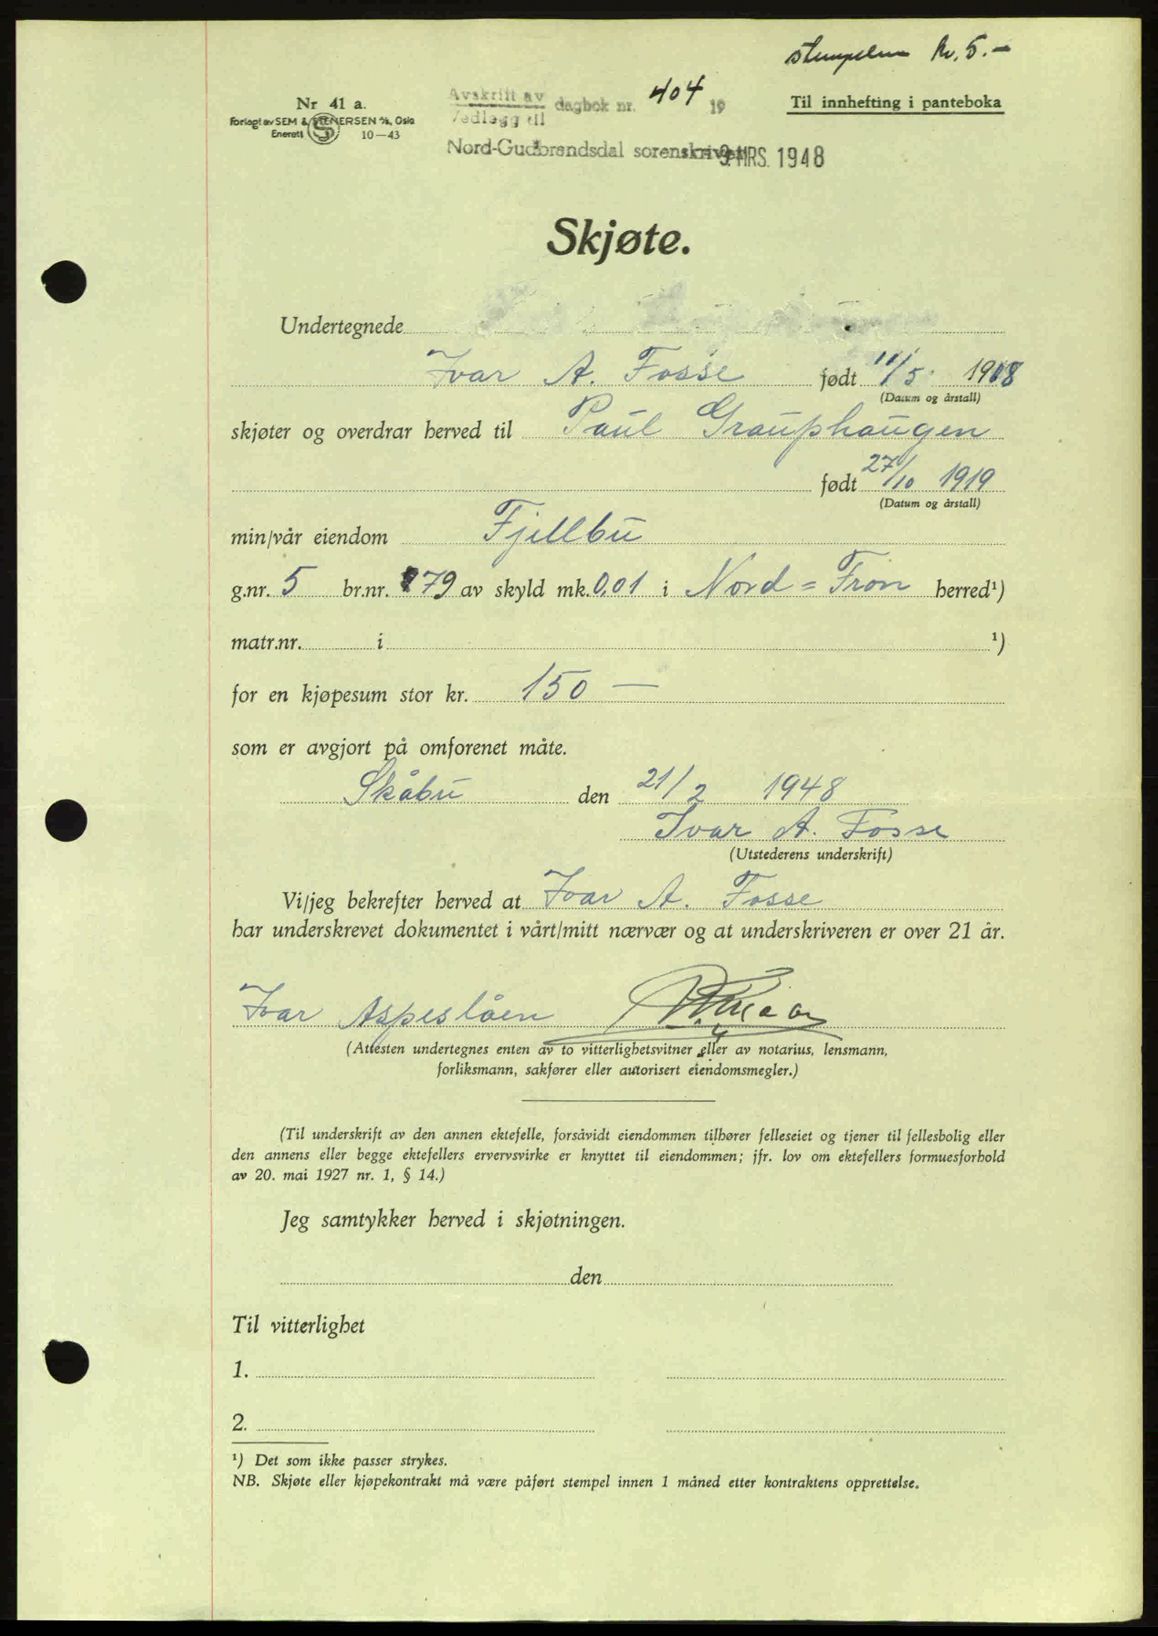 stempelm kr. 5.-
Nr 41 a.
Forlagt av SEM & STENERSEN A/S, Oslo
Enerett 10-43
Avskrift av
Vedlegg til dagbok nr. 404 19
Til innhefting i panteboka
Nord-Gudbrandsdal sorenskriveri 9. MRS. 1948
Skjøte.
Undertegnede
Ivar A. Fosse født 11/5 1918
(Datum og årstall)
skjøter og overdrar herved til Paul Grauphaugen
født 27/10 1919
(Datum og årstall)
min/vår eiendom Fjellbu
g.nr. 5 br.nr. 179 av skyld mk. 0,01 i Nord=Fron herred¹)
matr.nr. i ¹)
for en kjøpesum stor kr. 150 —
som er avgjort på omforenet måte.
Skåbu den 21/2 1948
Ivar A. Fosse
(Utstederens underskrift)
Vi/jeg bekrefter herved at Ivar A. Fosse
har underskrevet dokumentet i vårt/mitt nærvær og at underskriveren er over 21 år.
Ivar Aspeslåen
(Attesten undertegnes enten av to vitterlighetsvitner eller av notarius, lensmann,
forliksmann, sakfører eller autorisert eiendomsmegler.)
(Til underskrift av den annen ektefelle, forsåvidt eiendommen tilhører felleseiet og tjener til fellesbolig eller
den annens eller begge ektefellers ervervsvirke er knyttet til eiendommen; jfr. lov om ektefellers formuesforhold
av 20. mai 1927 nr. 1, § 14.)
Jeg samtykker herved i skjøtningen.
den
Til vitterlighet
1.
2.
¹) Det som ikke passer strykes.
NB. Skjøte eller kjøpekontrakt må være påført stempel innen 1 måned etter kontraktens opprettelse.